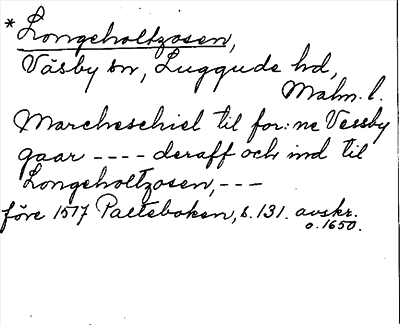 * Longeholtzosen,
Väsby sn, Luggude hd,
Malm. l.
Marcheschiel til for:ne Vessby
gaar ---- deraff och ind til
Longeholtzosen, ---
före 1517 Palteboken, s. 131. avskr.
o. 1650.